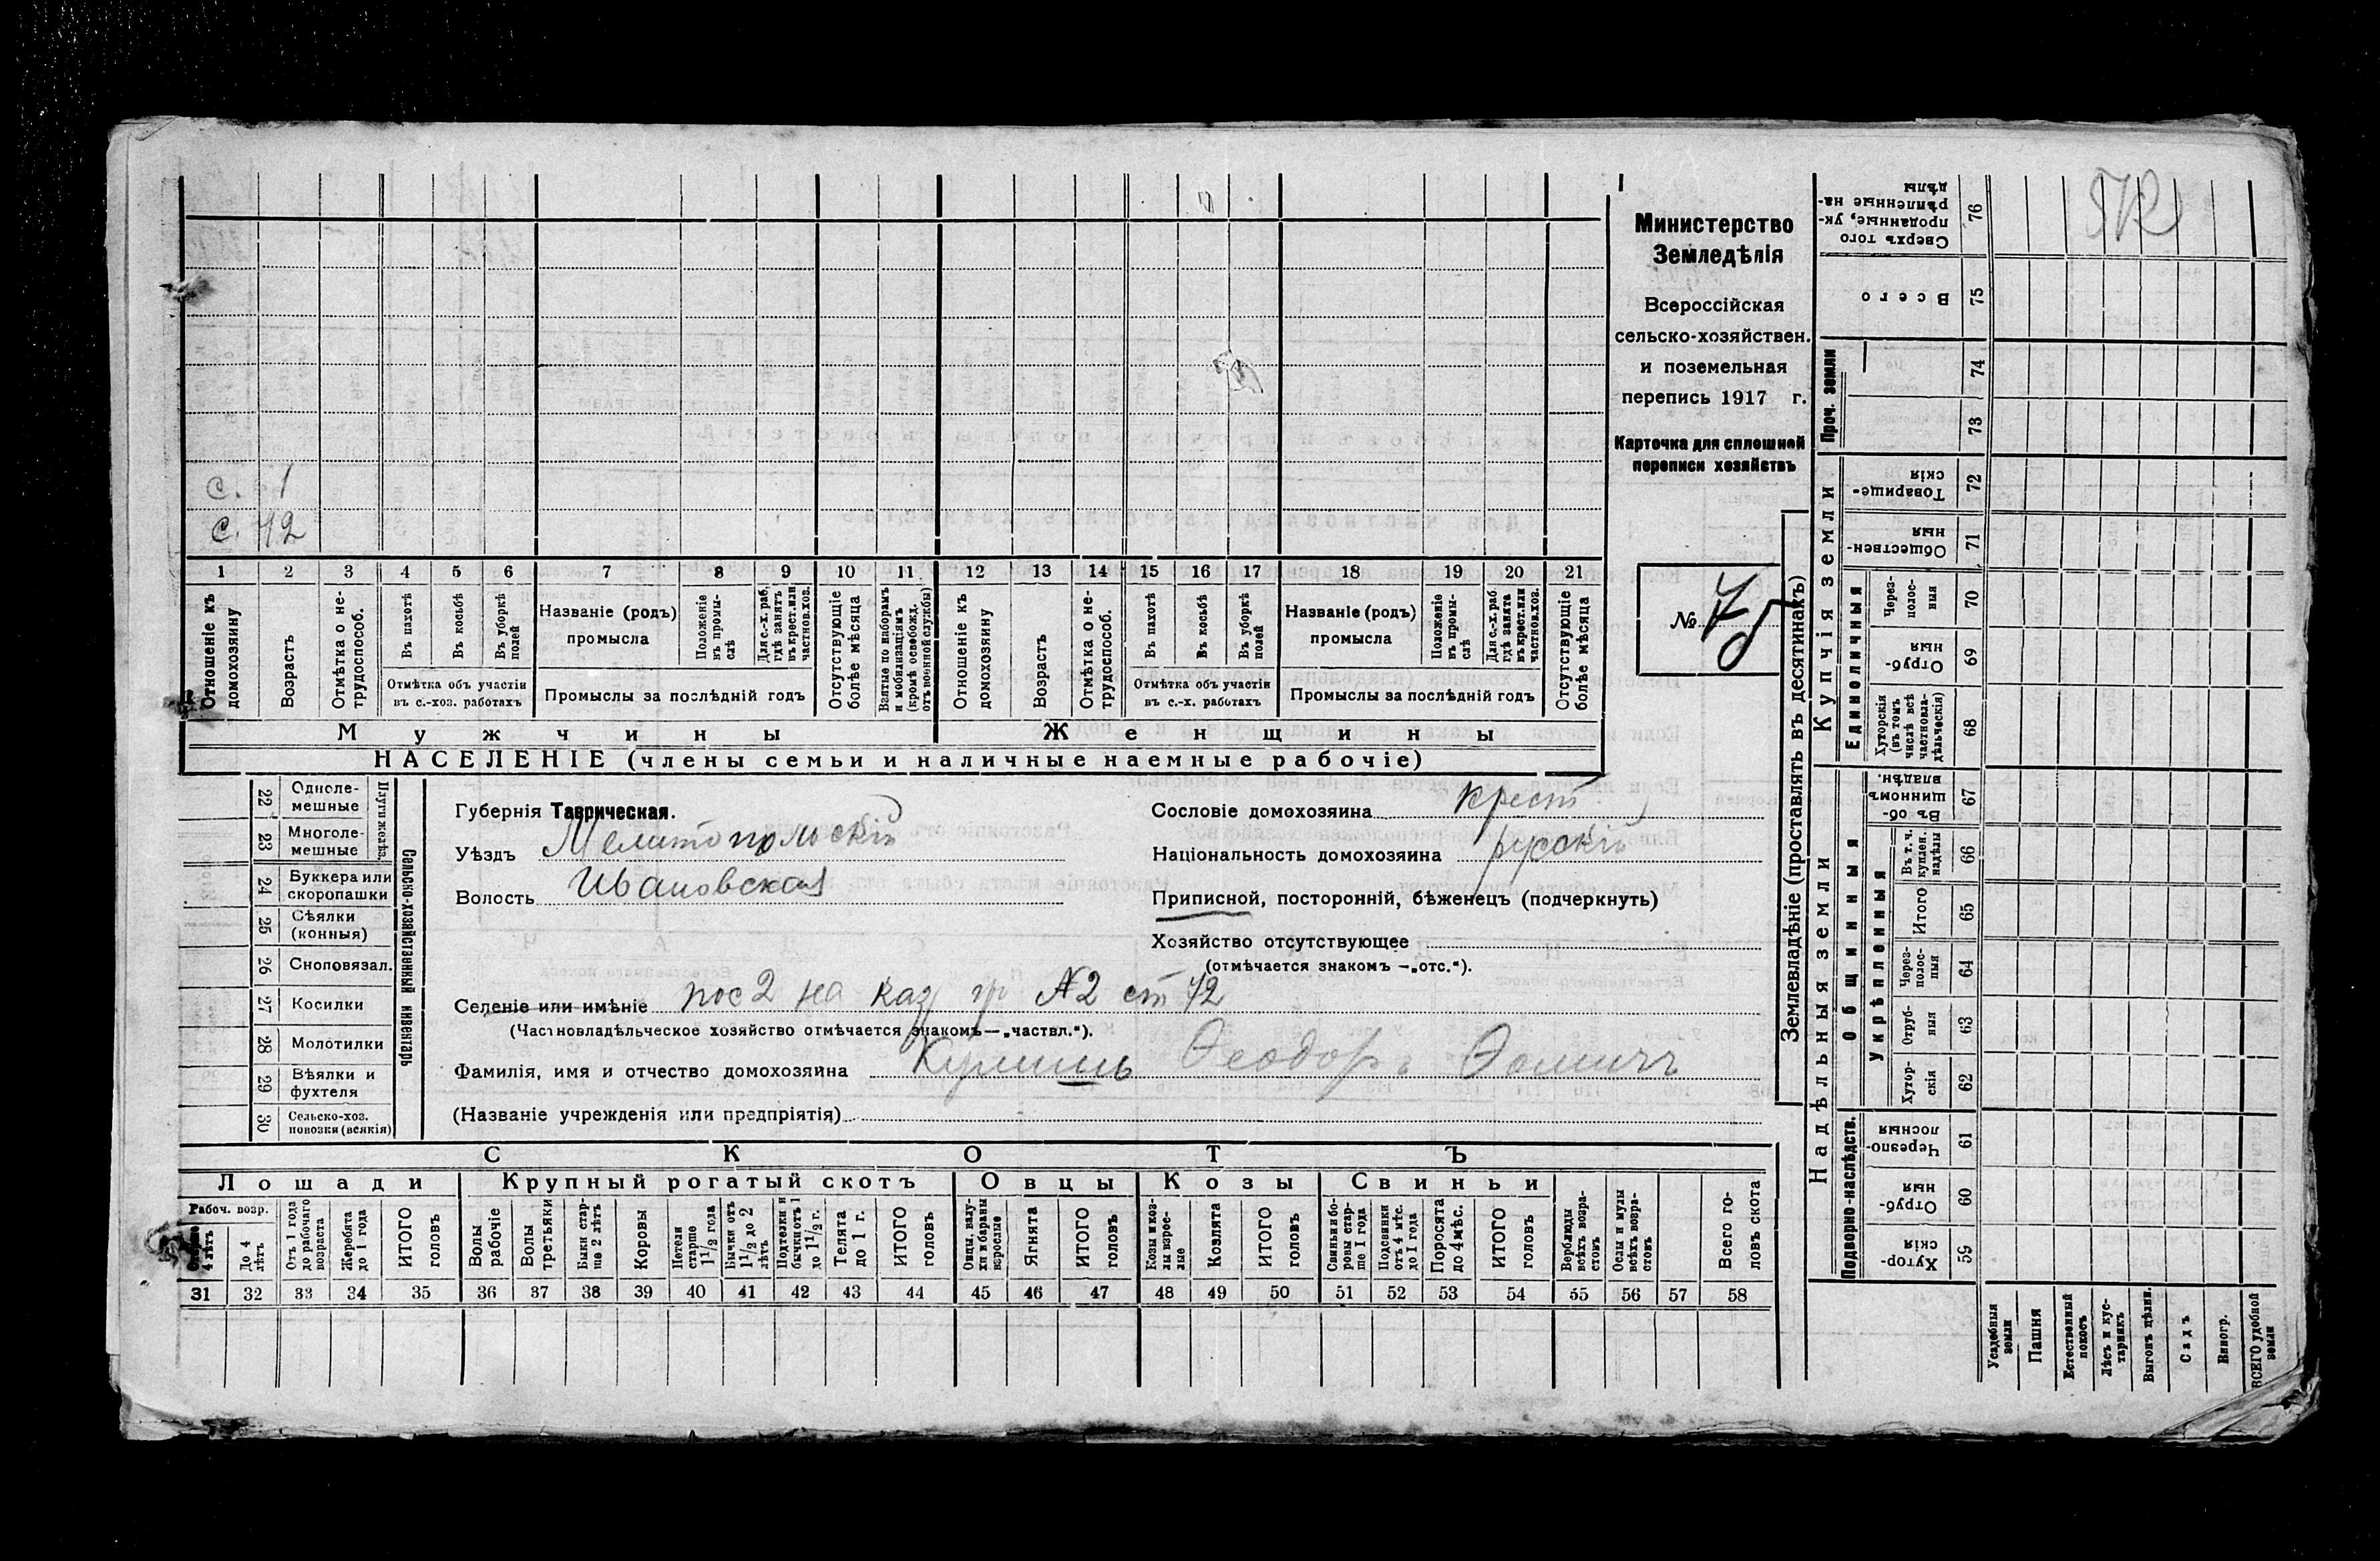 572
Министерство
Земледѣлія
Всероссійская
сельско-хозяйствен.
и поземельная
перепись 1917 г.
Карточка для сплошной
переписи хозяйствъ
№ 7
с. 1
с. 42
1 2 3 4 5 6 7 8 9 10 11 12 13 14 15 16 17 18 19 20 21
Отношеніе къ домохозяину
Возрастъ
Отмѣтка о нетрудоспособ.
Въ пахотѣ
Въ косьбѣ
Въ уборкѣ полей
Отмѣтка объ участіи
въ с.-хоз. работахъ
Названіе (родъ)
промысла
Положеніе въ промыслѣ
Для с.-х. раб. гдѣ занятъ въ крест. или частнов. хоз.
Промыслы за послѣдній годъ
Отсутствующіе болѣе мѣсяца
Взятые по наборамъ и мобилизаціямъ (кромѣ освобожд. отъ военной службы)
Отношеніе къ домохозяину
Возрастъ
Отмѣтка о нетрудоспособ.
Въ пахотѣ
Въ косьбѣ
Въ уборкѣ полей
Отмѣтка объ участіи
въ с.-х. работахъ
Названіе (родъ)
промысла
Положеніе въ промыслѣ
Для с.-х. раб. гдѣ занята въ крест. или частнов. хоз.
Промыслы за послѣдній годъ
Отсутствующіе болѣе мѣсяца
Мужчины Женщины
НАСЕЛЕНІЕ (члены семьи и наличные наемные рабочіе)
Сельско-хозяйственный инвентарь
22 Однолемешные
23 Многолемешные
24 Буккера или скоропашки
25 Сѣялки (конныя)
26 Сноповязал.
27 Косилки
28 Молотилки
29 Вѣялки и фухтеля
30 Сельско-хоз. повозки (всякія)
Губернія Таврическая.
Уѣздъ Мелитопольскій
Волость Ивановская
Сословіе домохозяина крест.
Національность домохозяина русскій
Приписной, посторонній, бѣженецъ (подчеркнуть)
Хозяйство отсутствующее
(отмѣчается знакомъ —„отс.“).
Селеніе или имѣніе пос 2 на каз гр №2 ст 42
(Частновладѣльческое хозяйство отмѣчается знакомъ—„частвл.“).
Фамилія, имя и отчество домохозяина Ѳеодоръ Ѳомичъ
(Названіе учрежденія или предпріятія)
СКОТЪ
Лошади Крупный рогатый скотъ Овцы Козы Свиньи
Рабоч. возр.
4 лѣтъ
До 4 лѣтъ
Отъ 1 года до рабочаго возраста
Жеребята до 1 года
ИТОГО головъ
Волы рабочіе
Волы третьяки
Быки старше 2 лѣтъ
Коровы
Нетели старше 1 1/2 года
Бычки отъ 1 1/2 до 2 лѣтъ
Подтелки и бычки отъ 1 до 1 1/2 г.
Телята до 1 г.
ИТОГО головъ
Овцы, валухи и бараны взрослые
Ягнята
ИТОГО головъ
Козы и козлы взрослые
Козлята
ИТОГО головъ
Свиньи и боровы старше 1 года
Подсвинки отъ 4 мѣс. до 1 года
Поросята до 4 мѣс.
ИТОГО головъ
Верблюды всѣхъ возрастовъ
Ослы и мулы всѣхъ возрастовъ
Всего головъ скота
31 32 33 34 35 36 37 38 39 40 41 42 43 44 45 46 47 48 49 50 51 52 53 54 55 56 57 58
Землевладѣніе (проставлять въ десятинахъ)
Сверхъ того проданные, укрѣпленные надѣлы 76
Всего 75
Проч. земли
74
73
Купчія земли
Товарищескія 72
Общественныя 71
Единоличныя
Черезполосныя 70
Отрубныя 69
Хуторскія (въ томъ числѣ всѣ частновладѣльческія) 68
Надѣльныя земли
Общинныя
Въ общинномъ владѣн. 67
Укрѣпленныя
Въ т. ч. куплен. надѣлы 66
Итого 65
Черезполосныя 64
Отрубныя 63
Хуторскія 62
Подворно-наслѣдств.
Черезполосныя 61
Отрубныя 60
Хуторскія 59
Усадебныя земли
Пашня
Естественный покосъ
Лѣсъ и кустарникъ
Выгонъ цѣлин.
Садъ
Виногр.
ВСЕГО удобной земли